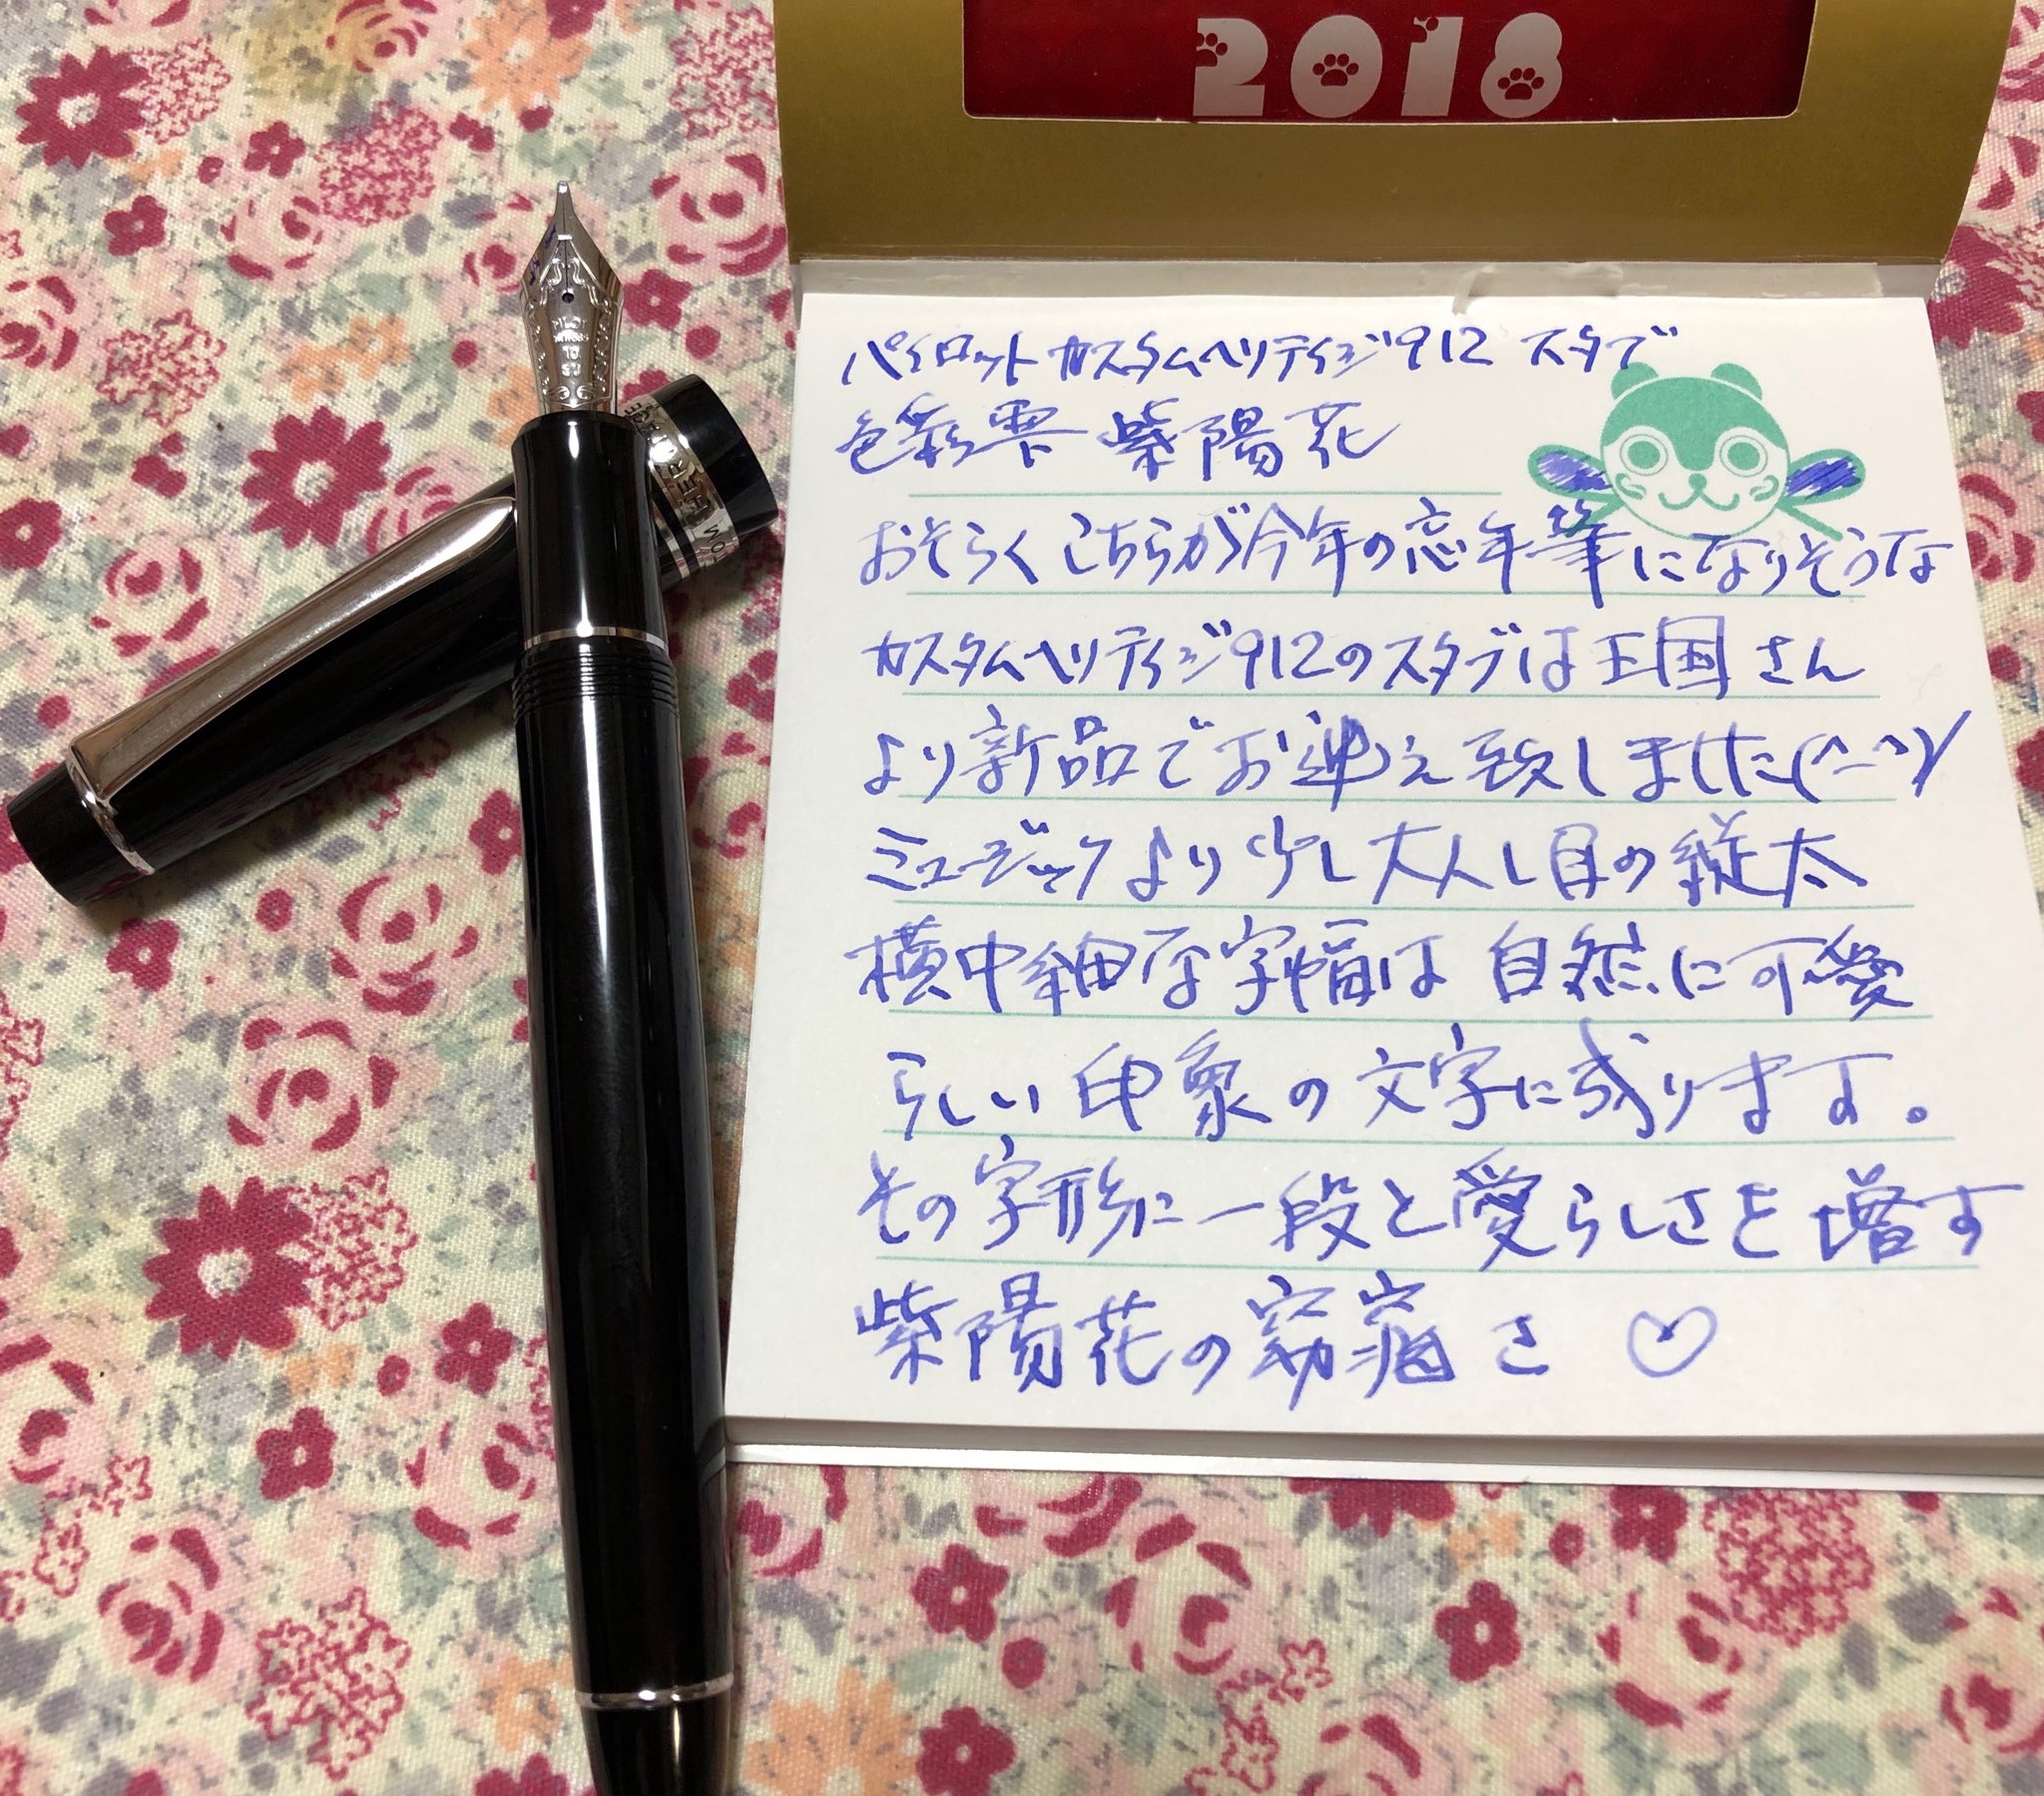 2018
パイロット カスタムヘリテイジ912 スタブ
色彩雫 紫陽花
おそらくこちらが今年の忘年筆になりそうな
カスタムヘリティジ912のスタブは王国さん
より新品でお迎え致しました(^-^)/
ミュージックより少し大人し目の縦太
横中細な字幅は自然に可愛
らしい印象の文字に成ります。
その字形に一段と愛らしさを増す
紫陽花の窈窕さ♡
PILOT
10